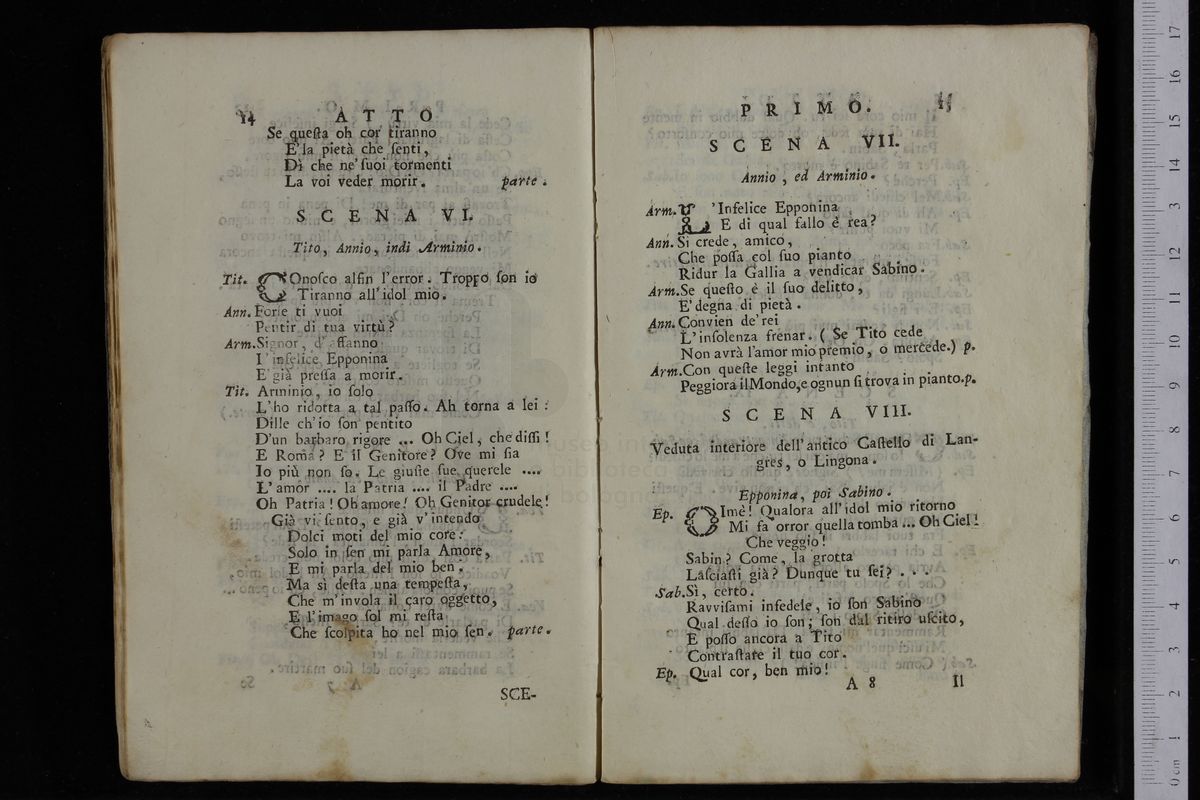 14 ATTO
Se questa oh cor tiranno
E' la pietà che senti,
Di che ne' suoi tormenti
La voi veder morir. parte.
SCENA VI.
Tito, Annio, indi Arminio.
Tit. COnosco alfin l'error. Troppo son io
Tiranno all'idol mio.
Ann. Forse ti vuoi
Pentir di tua virtù?
Arm. Signor, d'affanno
L'infelice Epponina
E' già pressa a morir.
Tit. Arminio, io solo
L'ho ridotta a tal passo. Ah torna a lei:
Dille ch'io son pentito
D'un barbaro rigore ... Oh Ciel, che dissi!
E Roma? E il Genitore? Ove mi sia
Io più non so. Le giuste sue querele ....
L'amor .... la Patria .... il Padre ....
Oh Patria! Oh amore! Oh Genitor crudele!
Già vi sento, e già v'intendo
Dolci moti del mio core:
Solo in sen mi parla Amore,
E mi parla del mio ben.
Ma sì desta una tempesta,
Che m'invola il caro oggetto,
E l'imago sol mi resta
Che scolpita ho nel mio sen. parte.
SCE-
PRIMO. 15
SCENA VII.
Annio, ed Arminio.
Arm. L'Infelice Epponina
E di qual fallo è rea?
Ann. Si crede, amico,
Che possa col suo pianto
Ridur la Gallia a vendicar Sabino.
Arm. Se questo è il suo delitto,
E' degna di pietà.
Ann. Convien de' rei
L'insolenza frenar. (Se Tito cede
Non avrà l'amor mio premio, o mercede.) p.
Arm. Con queste leggi intanto
Peggiora il Mondo, e ognun si trova in pianto. p.
SCENA VIII.
Veduta interiore dell'antico Castello di Lan-
gres, o Lingona.
Epponina, poi Sabino.
Ep. OImè! Qualora all'idol mio ritorno
Mi fa orror quella tomba ... Oh Ciel!
Che veggio!
Sabin? Come, la grotta
Lasciasti già? Dunque tu sei? ...
Sab. Sì, certo.
Ravvisami infedele, io son Sabino
Qual desso io son; son dal ritiro uscito,
E posso ancora a Tito
Contrastare il tuo cor.
Ep. Qual cor, ben mio!
A 8 Il